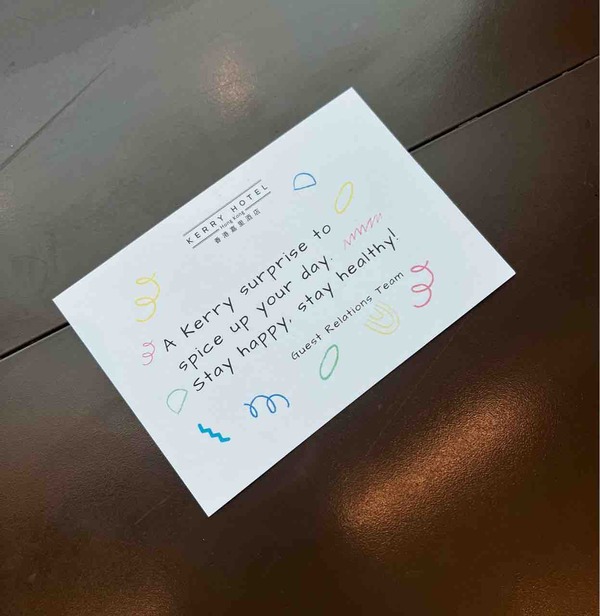 KERRY HOTEL
Hong Kong
香港嘉里酒店
A Kerry surprise to
spice up your day.
Stay happy, stay healthy!
Guest Relations Team